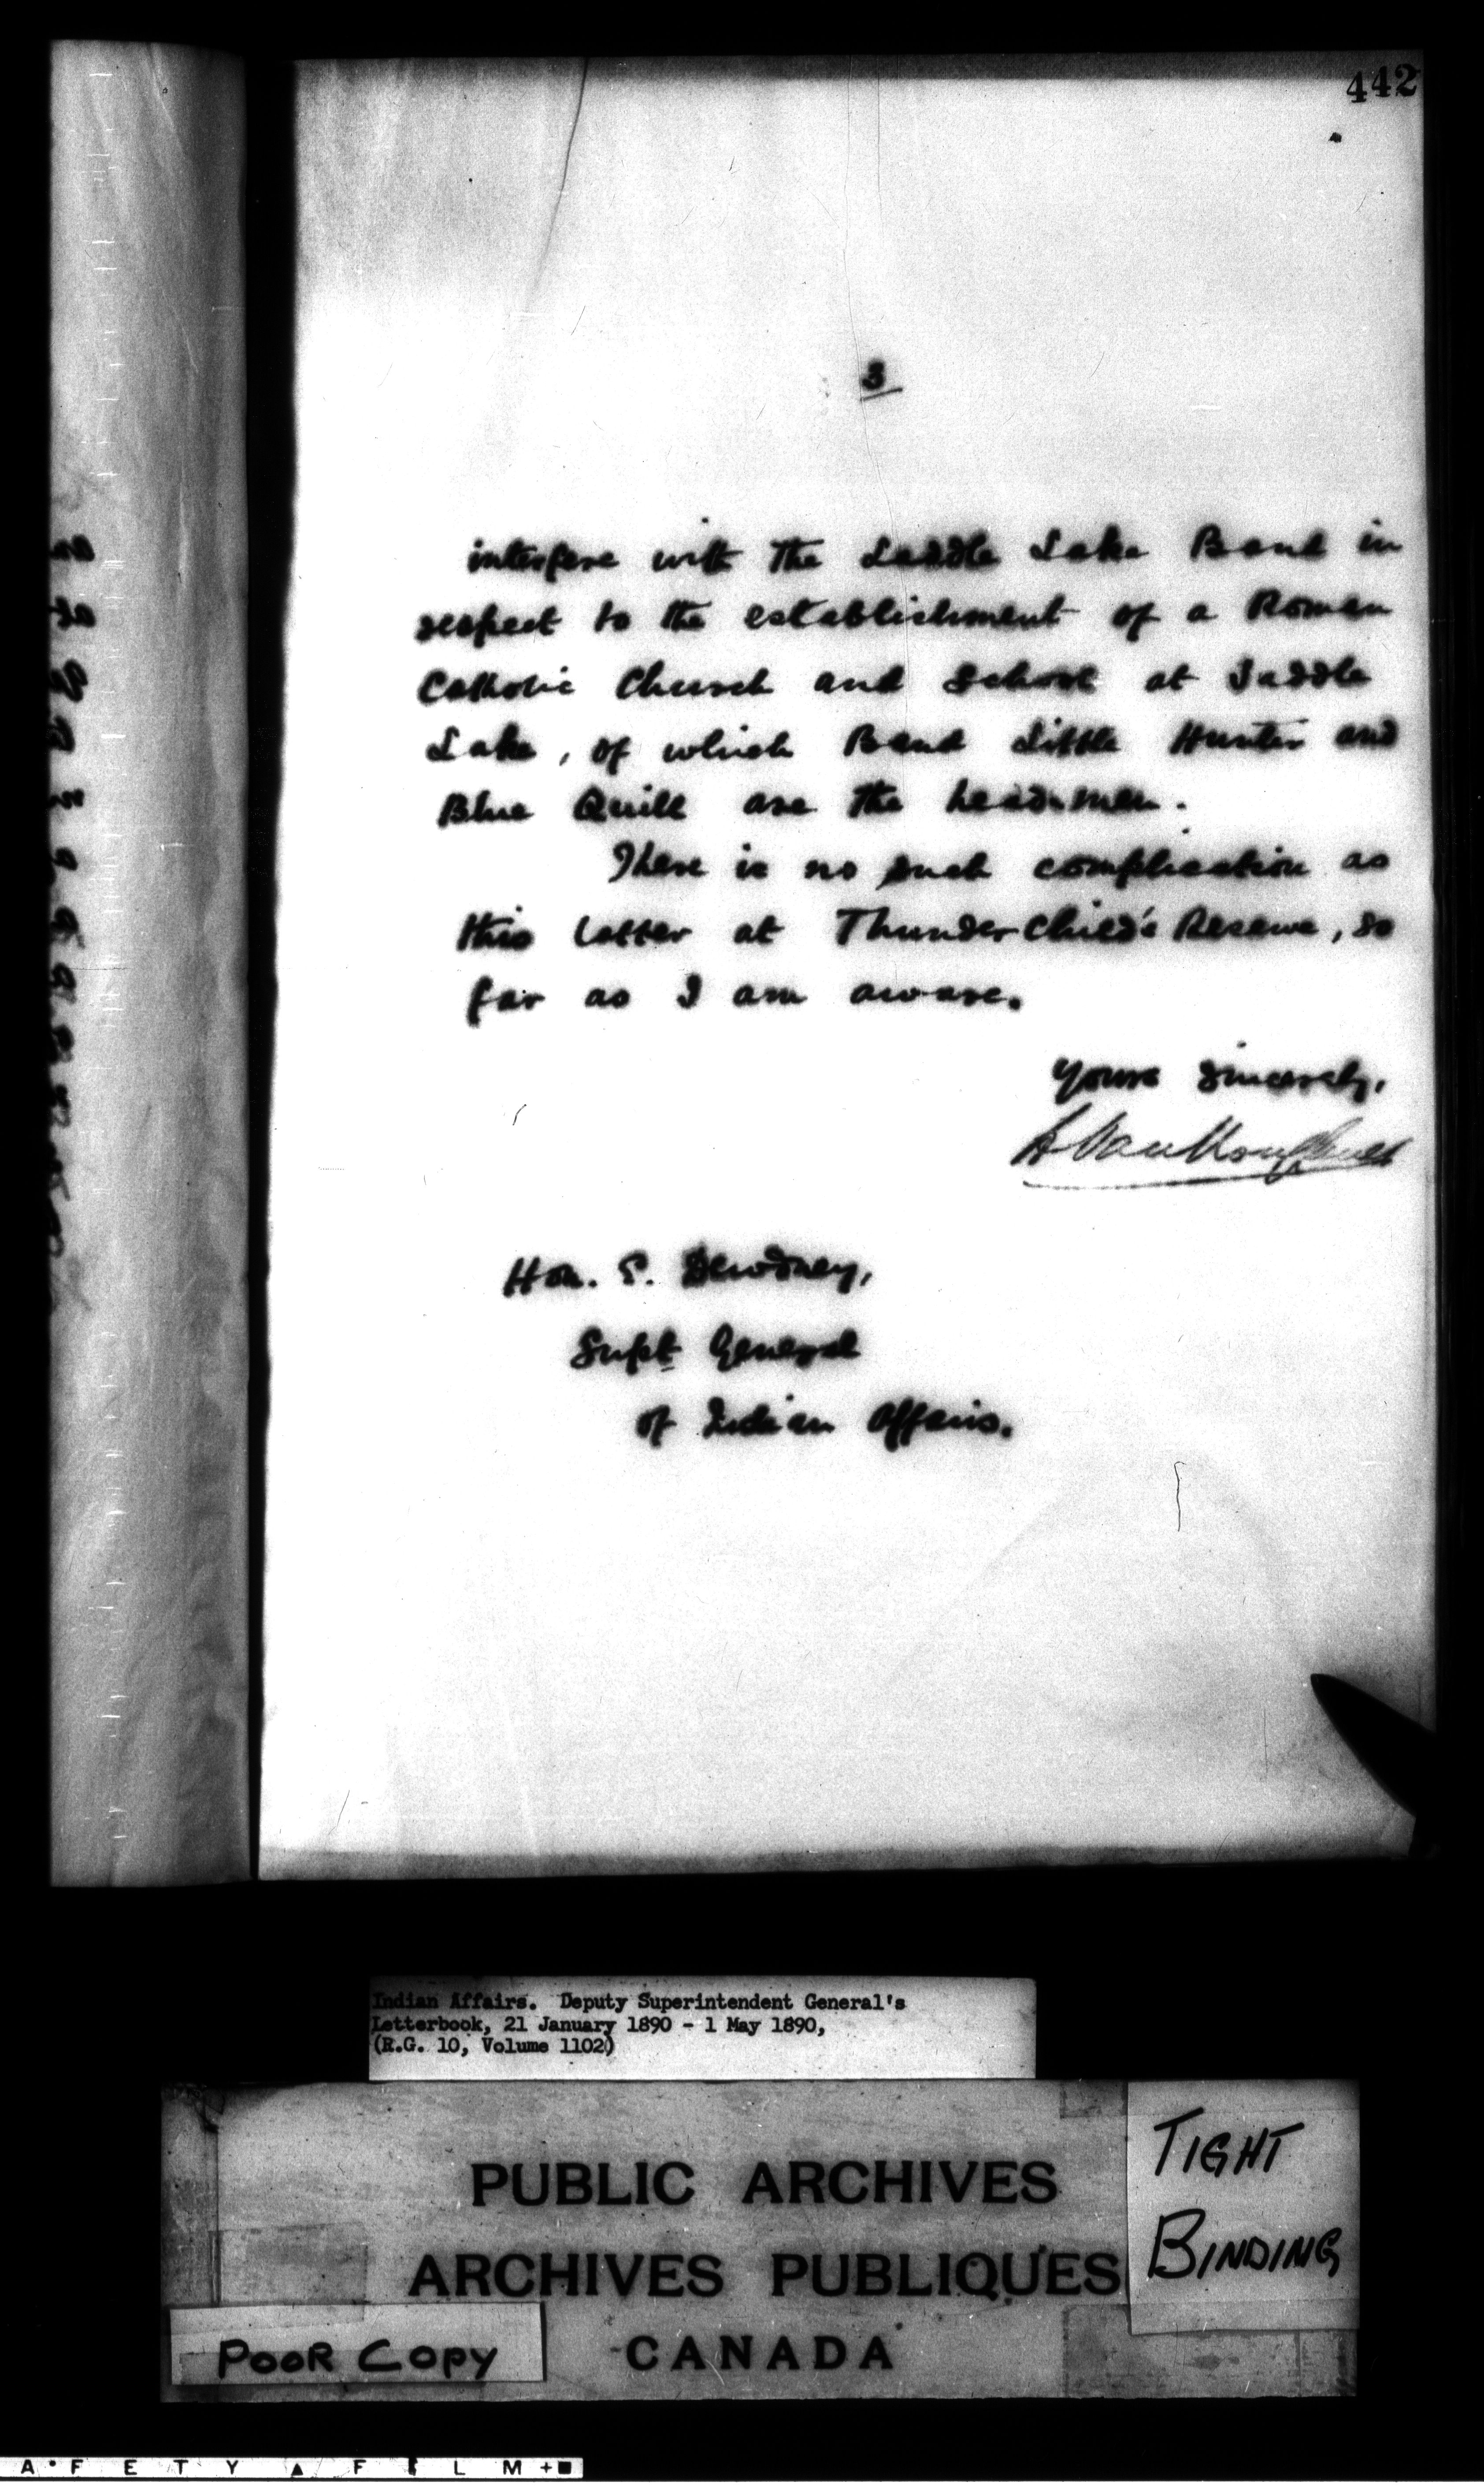 442
3
interfere with the Saddle Lake Band in
respect to the establishment of a Roman
Catholic Church and School at Saddle
Lake, of which Band Little Hunter and
Blue Quill are the headmen.
There is no such complication as
this latter at ThunderChild's Reserve, so
far as I am aware.
Yours sincerely,
L VanKoughnet
Hon. E. Dewdney,
Supt General
of Indian Affairs.
Indian Affairs. Deputy Superintendent General's
Letterbook, 21 January 1890 - 1 May 1890,
(R.G. 10, Volume 1102)
PUBLIC ARCHIVES
ARCHIVES PUBLIQUES
CANADA
TIGHT
BINDING
POOR COPY
AFETY FILM